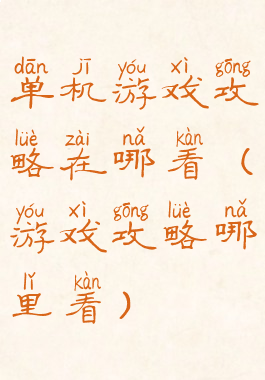 dān jī yóu xì gōng
单机游戏攻
lüè zài nǎ kàn
略在哪看（
yóu xì gōng lüè nǎ
游戏攻略哪
lǐ kàn
里看）